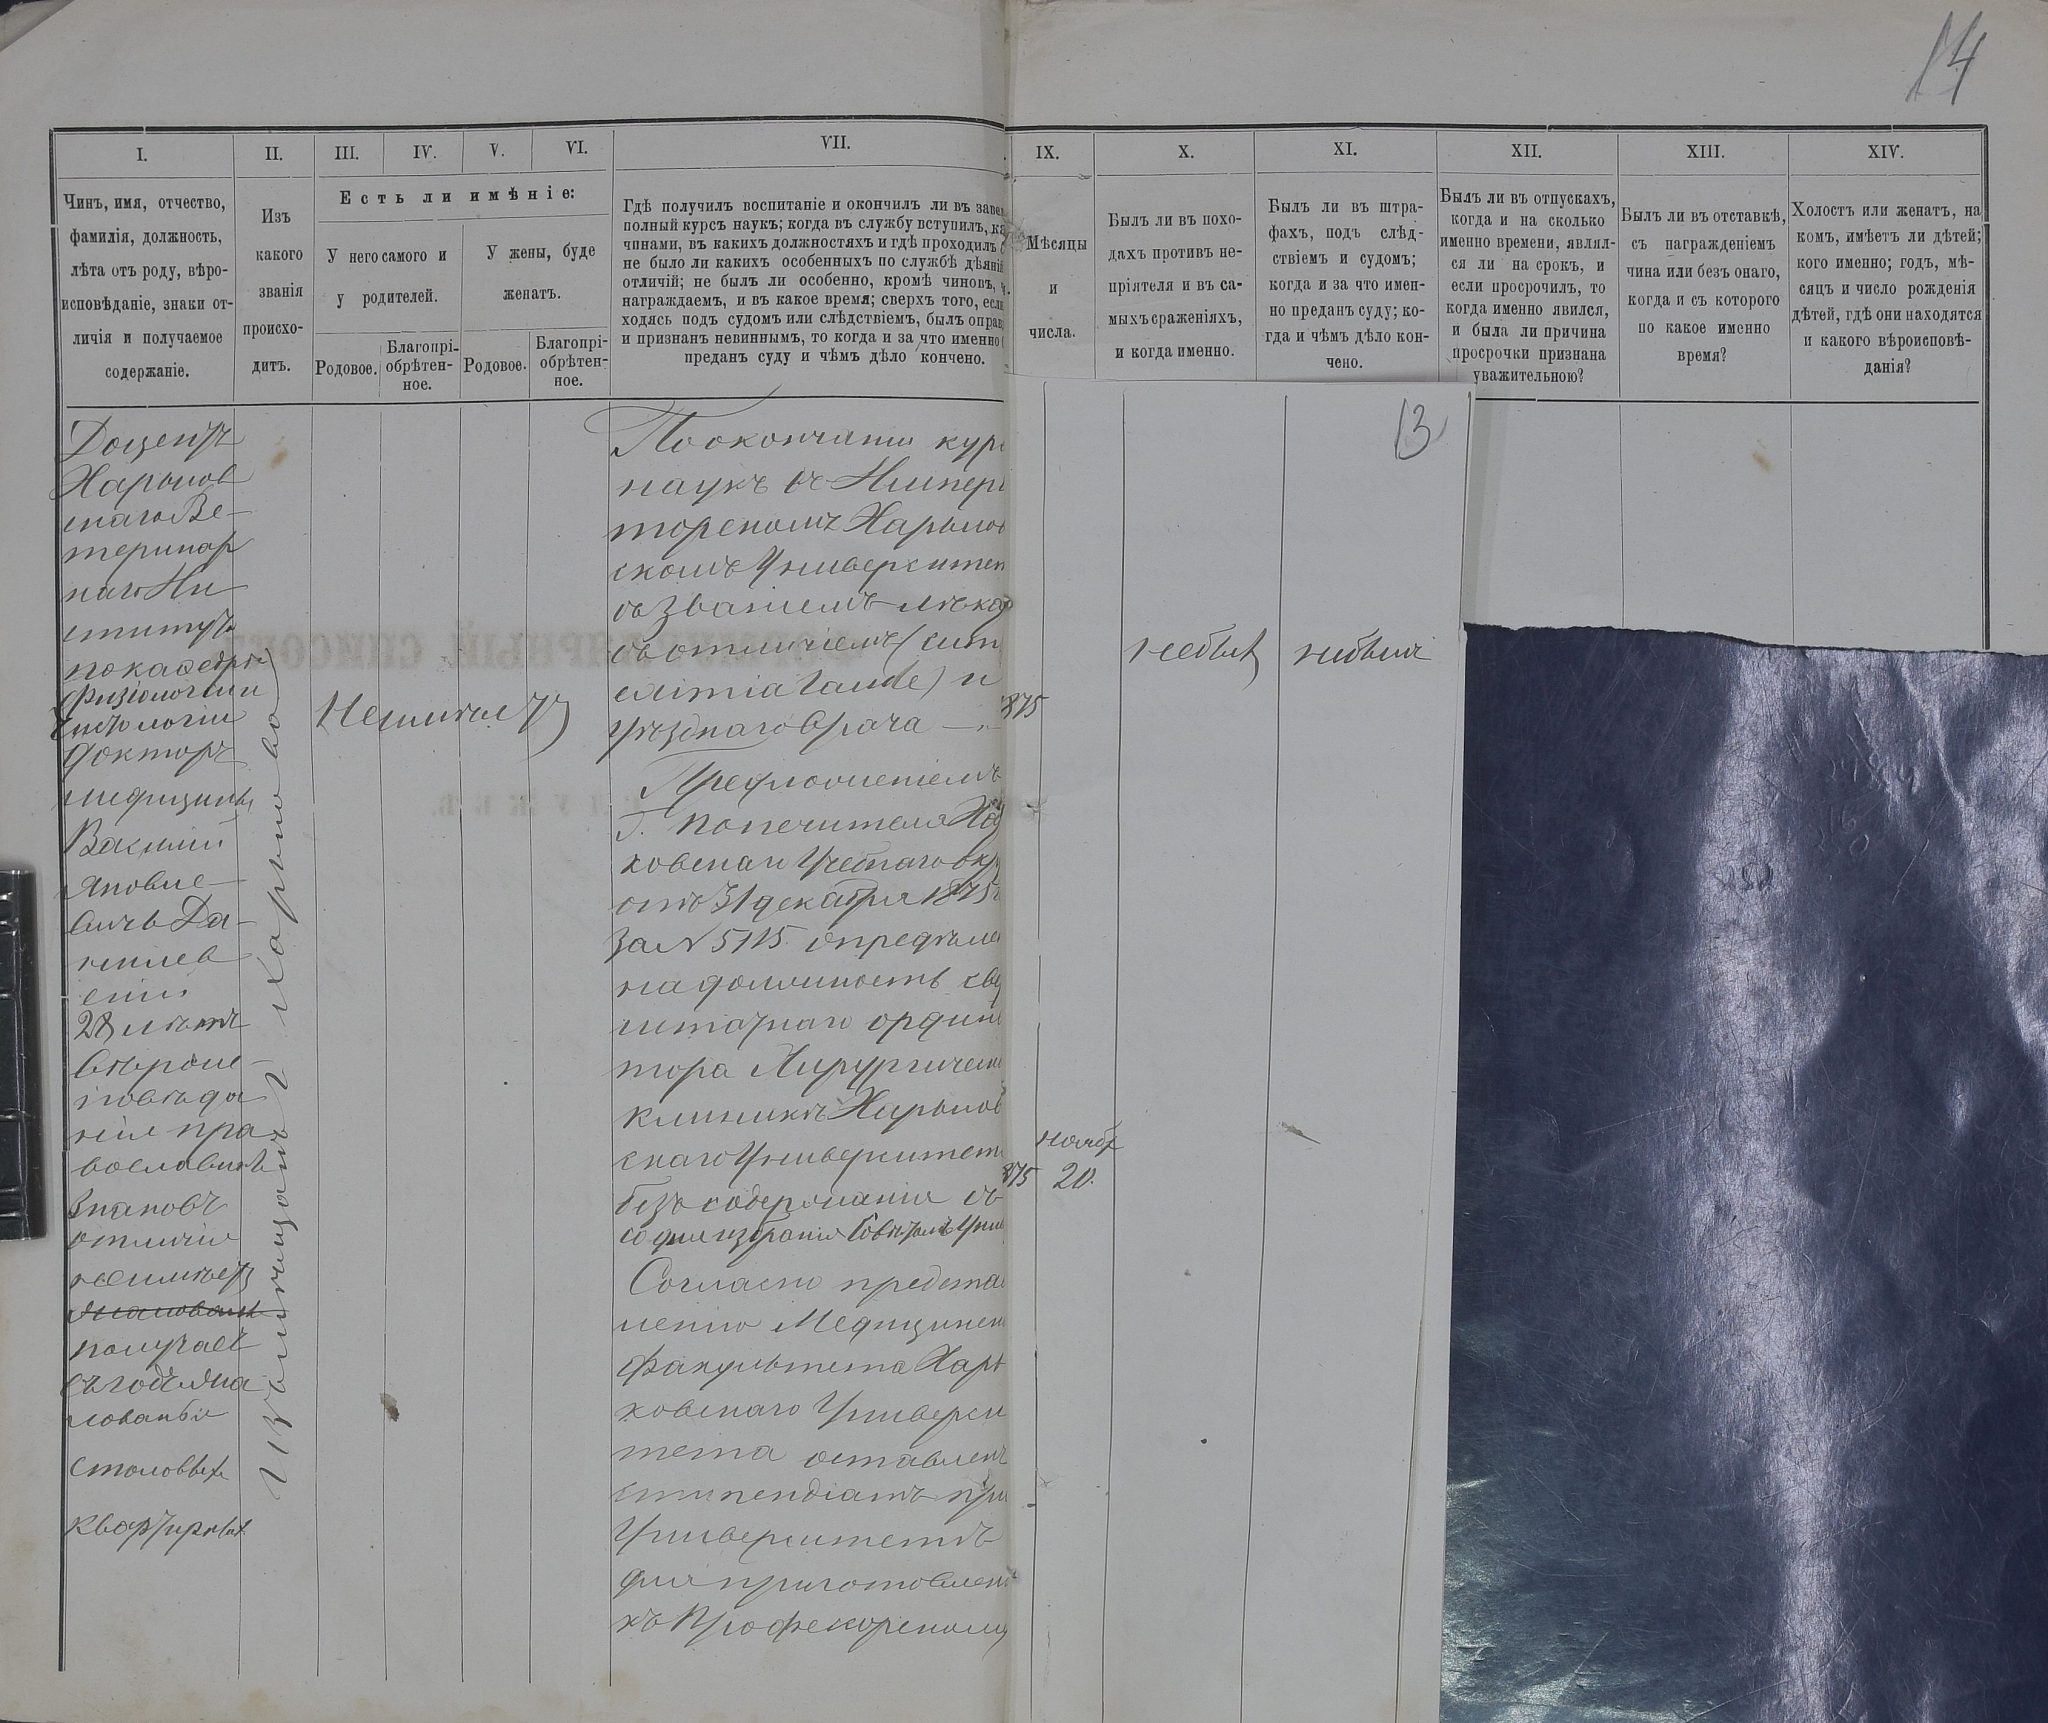 14
I.
II.
III.
IV.
V.
VI.
VII.
IX.
X.
XI.
XII.
XIII.
XIV.
Чинъ, имя, отчество,
фамилія, должность,
лѣта отъ роду, вѣро-
исповѣданіе, знаки от-
личія и получаемое
содержаніе.
Изъ
какого
званія
происхо-
дитъ.
Есть ли имѣніе:
У него самого и
у родителей.
У жены, буде
женатъ.
Родовое.
Благопрі-
обрѣтен-
ное.
Родовое.
Благопрі-
обрѣтен-
ное.
Гдѣ получилъ воспитаніе и окончилъ ли въ заве
полный курсъ наукъ; когда въ службу вступилъ, ка
чинами, въ какихъ должностяхъ и гдѣ проходилъ
не было ли какихъ особенныхъ по службѣ дѣяній
отличій; не былъ ли особенно, кромѣ чиновъ,
награждаемъ, и въ какое время; сверхъ того, если
ходясь подъ судомъ или слѣдствіемъ, былъ оправ
и признанъ невиннымъ, то когда и за что именно
преданъ суду и чѣмъ дѣло кончено.
Мѣсяцы
и
числа.
Былъ ли въ похо-
дахъ противъ не-
пріятеля и въ са-
мыхъ сраженіяхъ,
и когда именно.
Былъ ли въ штра-
фахъ, подъ слѣд-
ствіемъ и судомъ;
когда и за что имен-
но преданъ суду; ко-
гда и чѣмъ дѣло кон-
чено.
Былъ ли въ отпускахъ,
когда и на сколько
именно времени, являл-
ся ли на срокъ, и
если просрочилъ, то
когда именно явился,
и была ли причина
просрочки признана
уважительною?
Былъ ли въ отставкѣ,
съ награжденіемъ
чина или безъ онаго,
когда и съ котораго
по какое именно
время?
Холостъ или женатъ, на
комъ, имѣетъ ли дѣтей;
кого именно; годъ, мѣ-
сяцъ и число рожденія
дѣтей, гдѣ они находятся
и какого вѣроисповѣ-
данія?
Доцентъ
Харьков
скаго Ве-
теринар
наго Ин
ститута
по кафедрѣ
физіологіи и
гистологіи
Докторъ
медицины
Василій
Яковле-
вичъ Да-
нилев
скій
28 лѣтъ
вѣроис-
повѣда
нія пра
вославнаго
Знаковъ
отличія
не имѣетъ
получаетъ
въ годъ жа
лованья
столовыхъ
квартирныхъ
Неимѣетъ
По окончаніи кур
наукъ въ Импера
торскомъ Харьков
скомъ Университе
съ званіемъ лѣка
съ отличіемъ (cum
eximia laude) и
Уѣзднаго врача
Предложеніемъ
Г. Попечителя Ха
ковскаго Учебнаго окр
отъ 31 декабря 1875
за N 5115 опредѣле
на должность све
штатнаго ордин
тора Хирургическ
клиники Харьков
скаго Университет
безъ содержанія съ
со дня избранія Совѣтомъ Унив
Согласно предста
ленію Медицинск
факультета Харь
ковскаго Универси
тета оставленъ
стипендіатъ при
Университетѣ
для приготовлен
къ Профессорскому
13
875
ноябр
875 20.
небылъ
небылъ